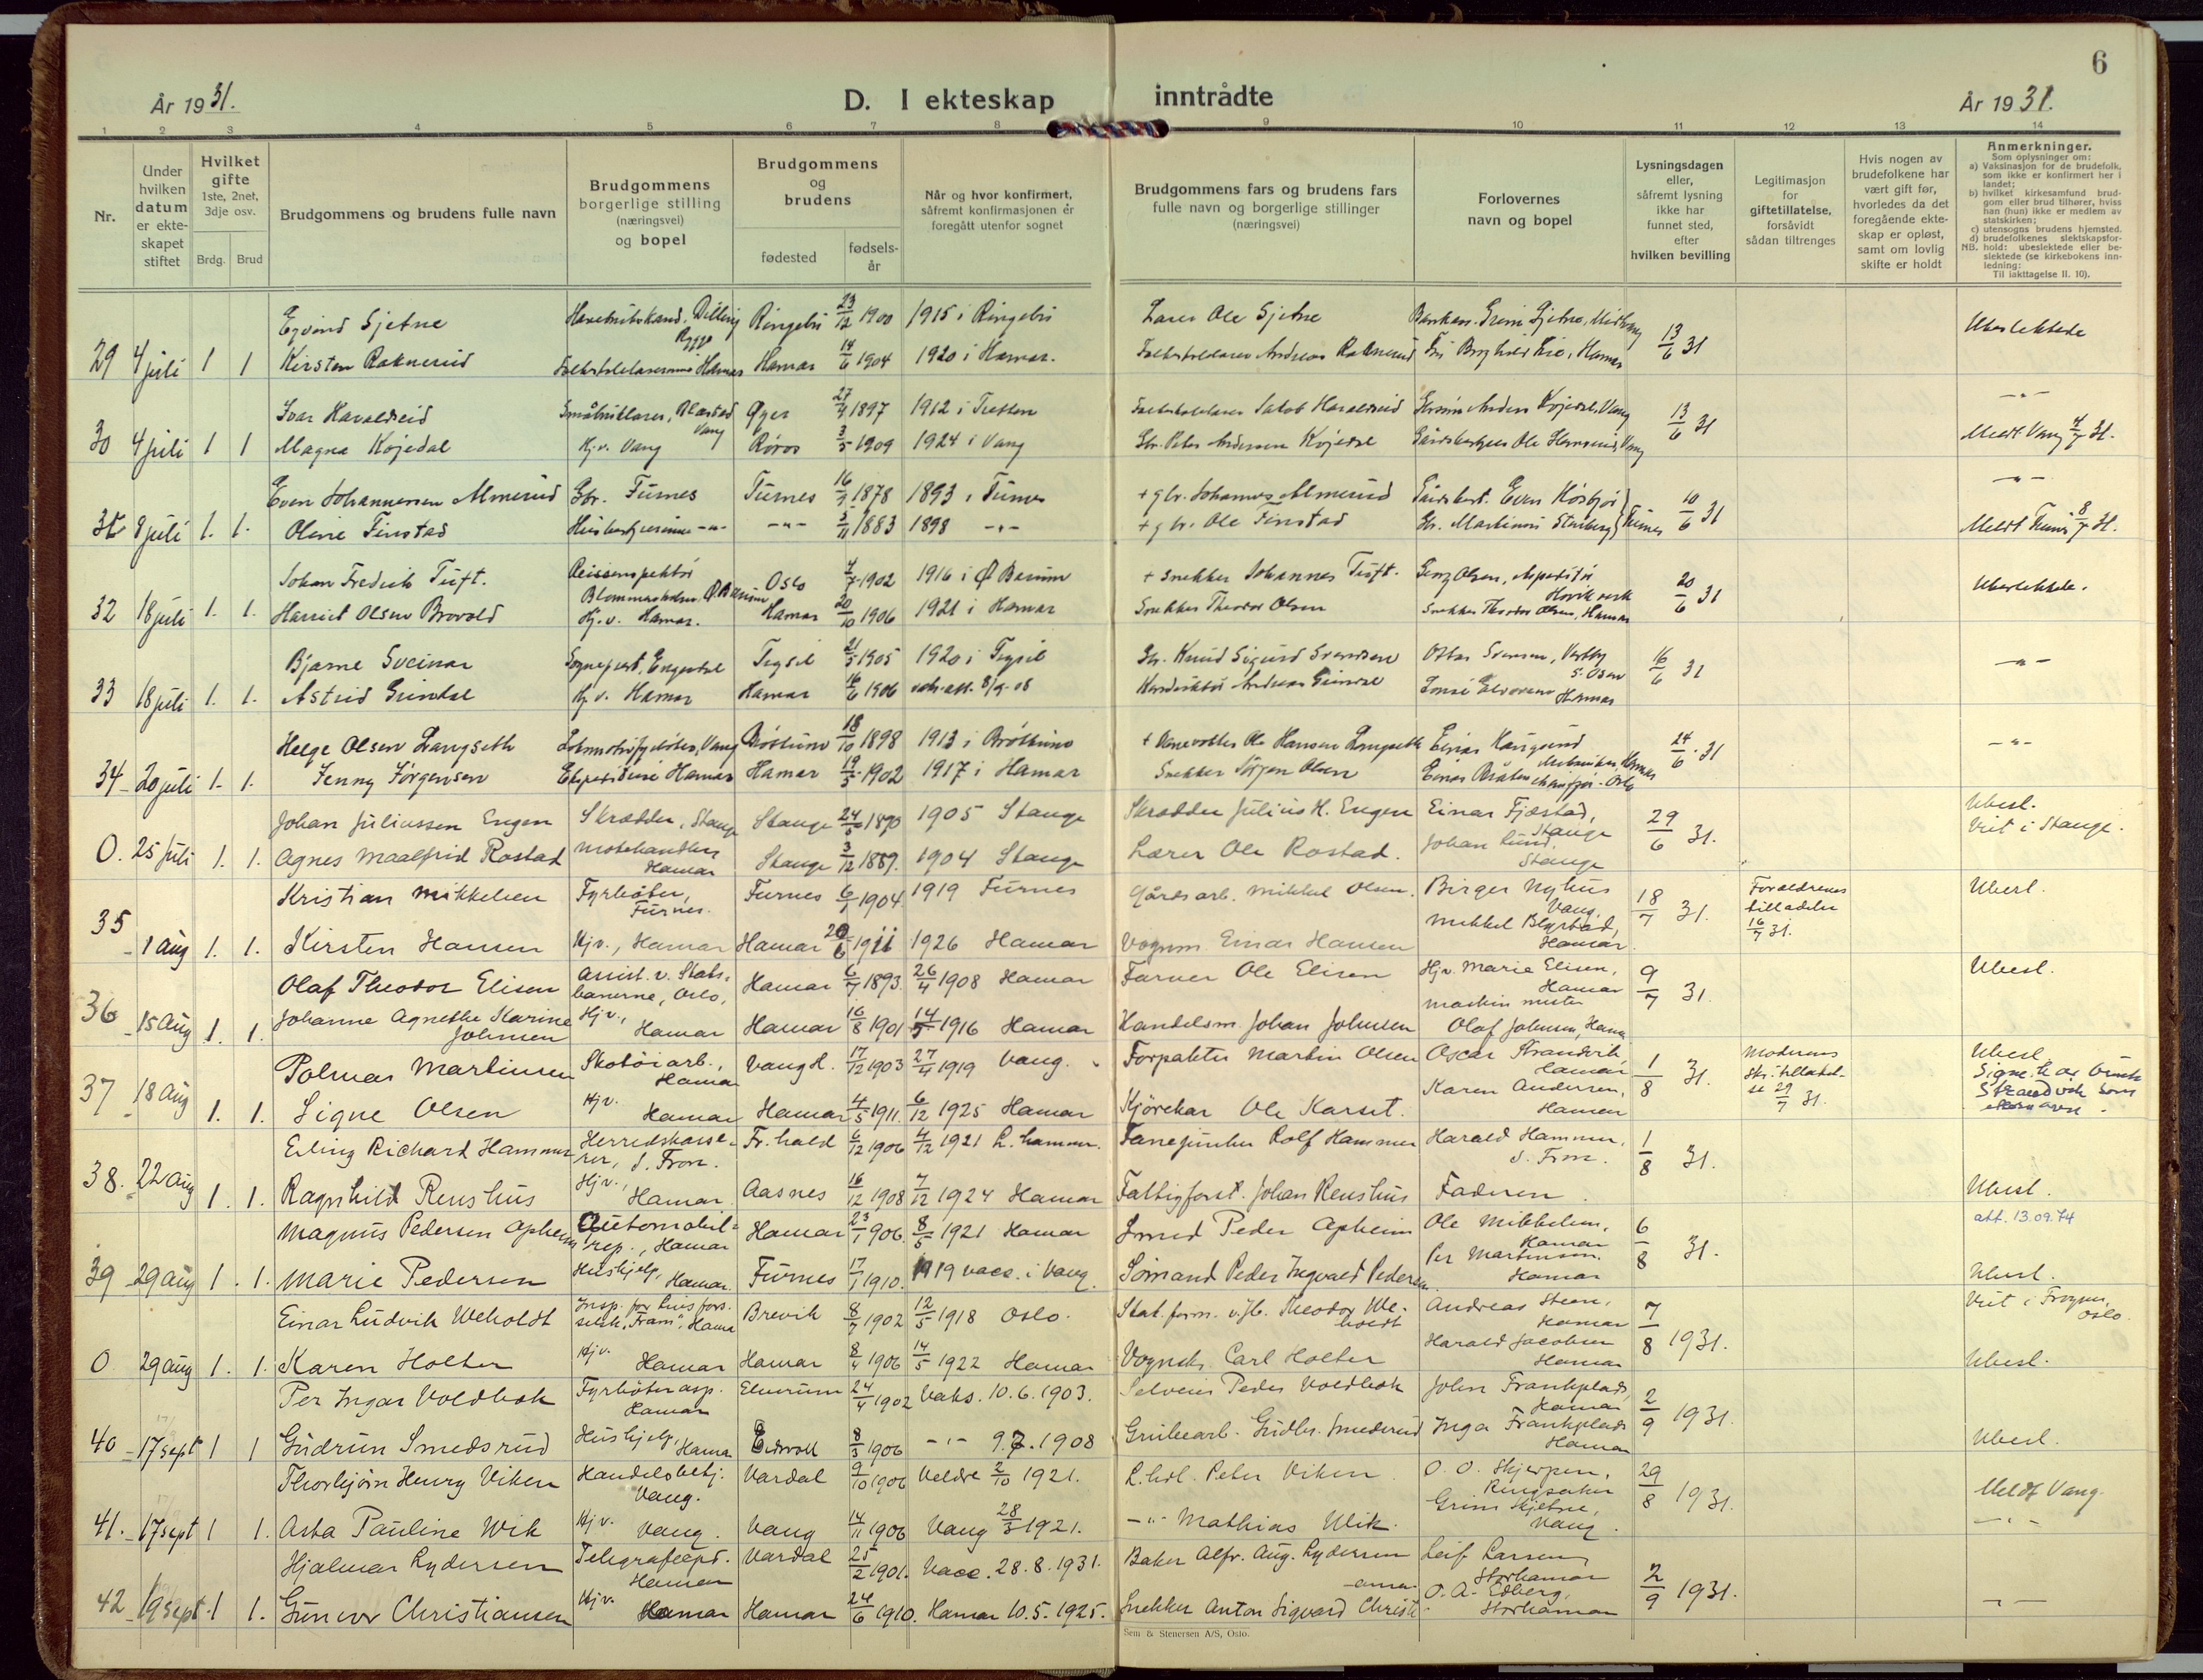 6
År 1931.
D. I ekteskap inntrådte
År 1931.
1 2 3 4 5 6 7 8 9 10 11 12 13 14
Nr.
Under hvilken datum er ekteskapet stiftet
Hvilket gifte 1ste, 2net, 3dje osv.
Brdg. Brud
Brudgommens og brudens fulle navn
Brudgommens borgerlige stilling (næringsvei) og bopel
Brudgommens og brudens
fødested
fødsels-år
Når og hvor konfirmert, såfremt konfirmasjonen er foregått utenfor sognet
Brudgommens fars og brudens fars fulle navn og borgerlige stillinger (næringsvei)
Forlovernes navn og bopel
Lysningsdagen eller, såfremt lysning ikke har funnet sted, efter hvilken bevilling
Legitimasjon for giftetillatelse, forsåvidt sådan tiltrenges
Hvis nogen av brudefolkene har vært gift før, hvorledes da det foregående ekteskap er opløst, samt om lovlig skifte er holdt
Anmerkninger.
Som oplysninger om:
a) Vaksinasjon for de brudefolk, som ikke er konfirmert her i landet;
b) hvilket kirkesamfund brudgom eller brud tilhører, hviss han (hun) ikke er medlem av statskirken;
c) utensogns brudens hjemsted.
d) brudefolkenes slektskapsforhold: ubeslektede eller beslektede (se kirkebokens innledning:
NB. Til iakttagelse II. 10).
Eyvind Gjetne Ringebu 23/12 1900 1915 i Ringebu Lærer Ole Gjetne Ubeslektede
29 4 juli 1 1 Kirsten Raknerud Hamar 14/6 1904 1920 i Hamar. Andreas Raknerud 13/6 31
Ivar Haraldseid Vang Øyer 27/4 1897 1912 i Tretten Jakob Haraldseid -"-
30 4 juli 1 1 Magna Kojedal Hj.v. Vang Røros 3/5 1909 1924 i Vang Gbr. Peter Andersen Kojedal 13/6 31 Meldt Vang 4/7 31.
Even Johannessen Almerud Gbr. Furnes Furnes 16/7 1878 1893 i Furnes + gbr. Johannes Almerud -"-
31 8 juli 1. 1. Oline Finstad -"- -"- 3/11 1883 1898 -"- + gbr. Ole Finstad Furnes 10/6 31 Meldt Furnes 8/7 31.
Johan Fredrik Tuft. Reiseinspektør Oslo 4/7 1902 1916 i Ø. Bærum + snekker Johannes Tuft. Ubeslektede.
32 18 juli 1. 1. Harriet Olsen Brovold Hj.v. Hamar. Hamar 20/10 1906 1921 i Hamar Snekker Theodor Olsen Snekker Theodor Olsen, Hamar 20/6 31
Bjarne Sveinar Sogneprest, Engerdal Trysil 21/5 1905 1920 i Trysil Gbr. Knud Sigurd Svendsen -"-
33 18 juli 1. 1. Astrid Grindal Hj.v. Hamar Hamar 16/6 1906 vak.att. 8/9-08 Andreas Grindal Hamar 16/6 31
Helge Olsen Langseth Lokomotivfyrbøter, Vang Brøttum 18/10 1898 1913 i Brøttum Ole Hansen Langseth -"-
34 20 juli 1. 1. Jenny Jørgensen Ekspeditrise Hamar Hamar 19/5 1902 1917 i Hamar Snekker Jørgen Olsen 24/6 31
Johan Juliussen Engen Skrædder, Stange Stange 24/5 1890 1905 Stange Skrædder Julius H. Engen Einar Fjæstad, Stange Ubesl.
0. 25 juli 1. 1. Agnes Maalfrid Rostad Motehandler Hamar Stange 3/12 1889. 1904 Stange Lærer Ole Rostad. Johan Lund, Stange 29/6 31. Viet i Stange.
Kristian Mikkelsen Fyrbøter, Furnes. Furnes 6/1 1904. 1919 Furnes Gårdsarb. Mikkel Olsen. Birger Nyhus Vang. Foreldrenes tilladelse 16/7 31. Ubesl.
35 1 aug 1. 1. Kirsten Hansen Hj.v., Hamar Hamar 20/6 1911 1926 Hamar Vognm. Einar Hansen Mikkel Blystad, Hamar 18/7 31.
Olaf Theodor Elisen Assist. v. Statsbanerne, Oslo, Hamar 6/7 1893. 26/4 1908 Hamar Farver Ole Elisen Hj.v. Marie Elisen, Hamar Ubesl.
36 15 aug 1. 1. Johanne Agnethe Karine Johnsen Hj.v., Hamar Hamar 16/8 1901 14/5 1916 Hamar Handelsm. Johan Johnsen Maskinmester Olaf Johnsen, Hamar 9/7 31.
Polmar Martinsen Skotøiarb., Hamar Vang H. 17/12 1903 27/4 1919 Vang. Forpakter Martin Olsen Oscar Strandvik, Hamar Moderens skr. tillatelse 29/7 31. Ubesl.
37 18 aug 1. 1. Signe Olsen Hj.v. Hamar Hamar 4/5 1911. 6/12 1925 Hamar Kjørekar Ole Karset. Karen Andersen, Hamar 1/8 31.
Erling Richard Hammer Herredskasserer, S. Fron. Fr.hald 6/12 1906 4/12 1921 L.hammer. Fanejunker Rolf Hammer Harald Hammer, S. Fron.
38. 22 aug 1. 1. Ragnhild Renshus Hj.v., Hamar Aasnes 16/12 1908 7/12 1924 Hamar Fattigforst. Johan Renshus Faderen 1/8 31. Ubesl.
Magnus Pedersen Apheim Automobilrep., Hamar Hamar 23/1 1906. 8/5 1921 Hamar Smed Peder Apheim Ole Mikkelsen, Hamar att. 13.09.74
39 29 aug 1. 1. Marie Pedersen Hushjelp, Hamar. Furnes 17/1 1910. 1919 vacc. i Vang. Sømand Peder Ingvald Pedersen Per Martinsen. Hamar 6/8 31. Ubesl.
Einar Ludvik Weholdt Insp. for livsfors. selsk. "Fram", Hamar Brevik 8/7 1902 12/5 1918 Oslo. Theodor Weholdt Andreas Steen, Hamar Viet i Frogner, Oslo.
0 29 aug 1. 1. Karen Holter Hj.v. Hamar Hamar 8/4 1906 14/5 1922 Hamar Carl Holter Harald Jacobsen Hamar 7/8 1931. Ubesl.
Per Ingar Voldbak Fyrbøterasp. Hamar Elverum 24/4 1902 Vaks. 10.6.1903. Selveier Peder Voldbak John Frankplads, Hamar
40 17 sept 1 1 Gudrun Smedsrud Hushjelp, Hamar Eidsvoll 8/3 1906 -"- 9.7.1908 Grubearb. Gudbr. Smedsrud Inga Frankplads Hamar 2/9 1931. Ubesl.
Thorbjørn Henry Viken Handelsbetj. Vang. Vardal 9/10 1906 Veldre 2/10 1921. Peter Viken O. O. Skjerpen, Ringsaker Meldt Vang.
41. 17 sept 1 1. Asta Pauline Wik Hj.v. Vang. Vang 14/11 1906 Vang 28/3 1921. -"- Mathias Wik. Grim Skjetne, Vang. 29/8 1931. -"-
Hjalmar Lydersen Telegrafeksp. Hamar Vardal 25/2 1901. Vacc. 28.8.1931. Baker Alfr. Aug. Lydersen Leif Larsen, Storhamar
42 19 sept. 1 1. Gunvor Christiansen Hj.v. Hamar Hamar 24/6 1910. Hamar 10.5.1925. Snekker Anton Sigvard Christiansen O. A. Edberg, Storhamar 2/9 1931. -"-
Sem & Stenersen A/S, Oslo.